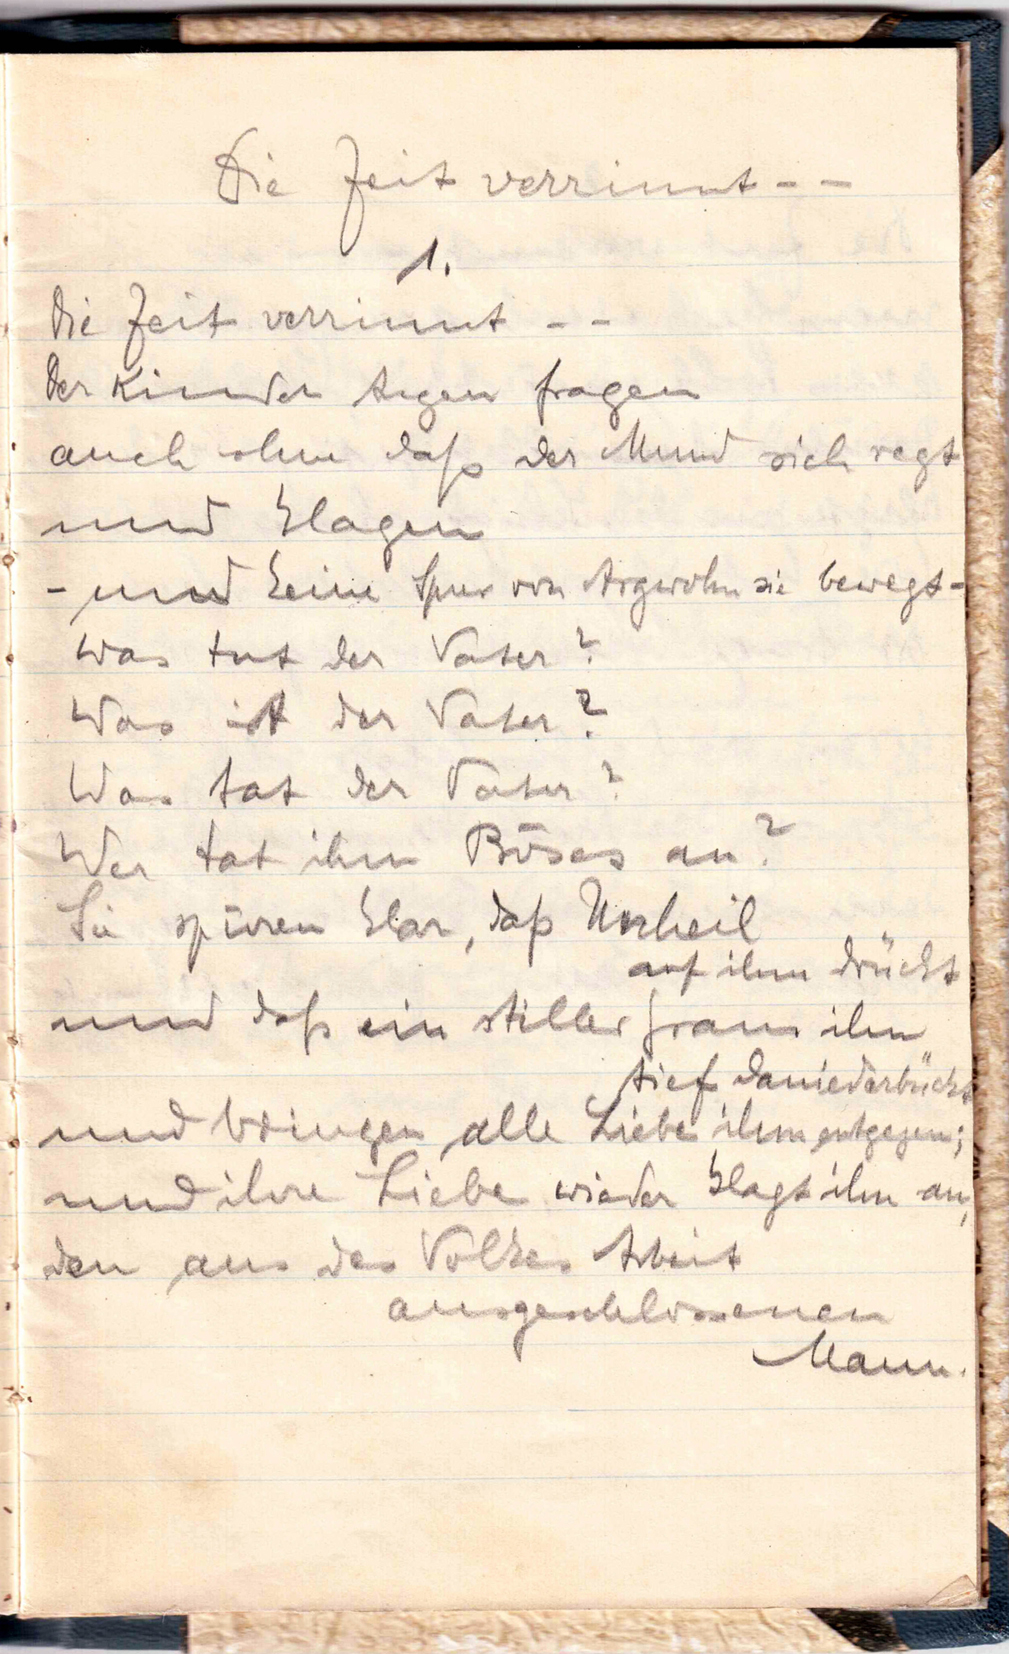 Die Zeit verrinnt - -
1.
Die Zeit verrinnt - -
Der Kinder Augen fragen
auch ohne daß der Mund sich regt
und klagen
- und keine Spur von Argwohn sie bewegt -
Was tut der Vater?
Was ist der Vater?
Was tat der Vater?
Wer tat ihm Böses an?
Sie spüren klar, daß Unheil
auf ihm drückt
und daß ein stiller Gram ihn
tief daniederbückt
und bringen alle Liebe ihm entgegen;
und ihre Liebe wieder klagt ihn an,
den aus des Volkes Arbeit
ausgeschlossenen
Mann.